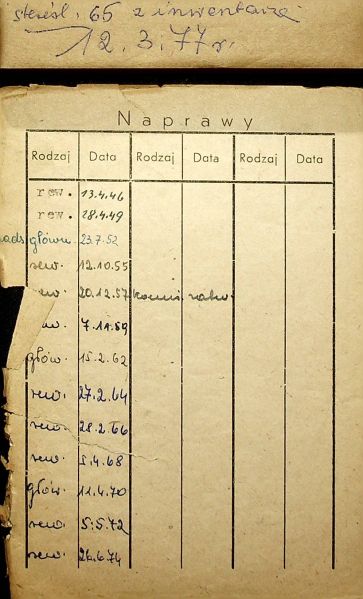 skreśl. 65 z inwentarza
12.3.77r.
Naprawy
Rodzaj Data Rodzaj Data Rodzaj Data
rew. 13.4.46
rew. 28.4.49
nads główn. 23.7.52
rew. 12.10.55
rew. 20.12.57
w. 7.11.59
głów. 15.2.62
rew. 27.2.64
rew. 28.2.66
rew. 5.4.68
głów. 11.4.70
rew. 5.5.72
rew. 26.6.74